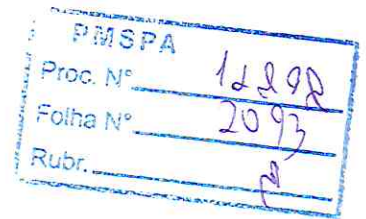 PMSPA
Proc. Nº
Folha Nº 2093
Rubr.